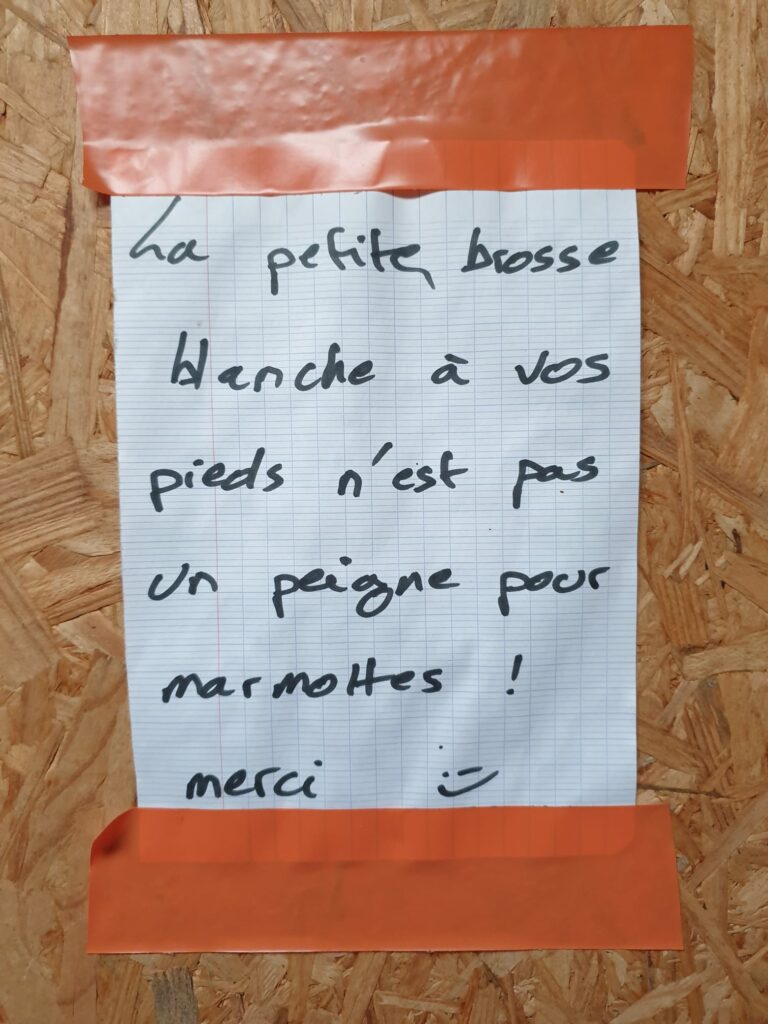 La petite brosse
blanche à vos
pieds n'est pas
un peigne pour
marmottes !
merci :-)